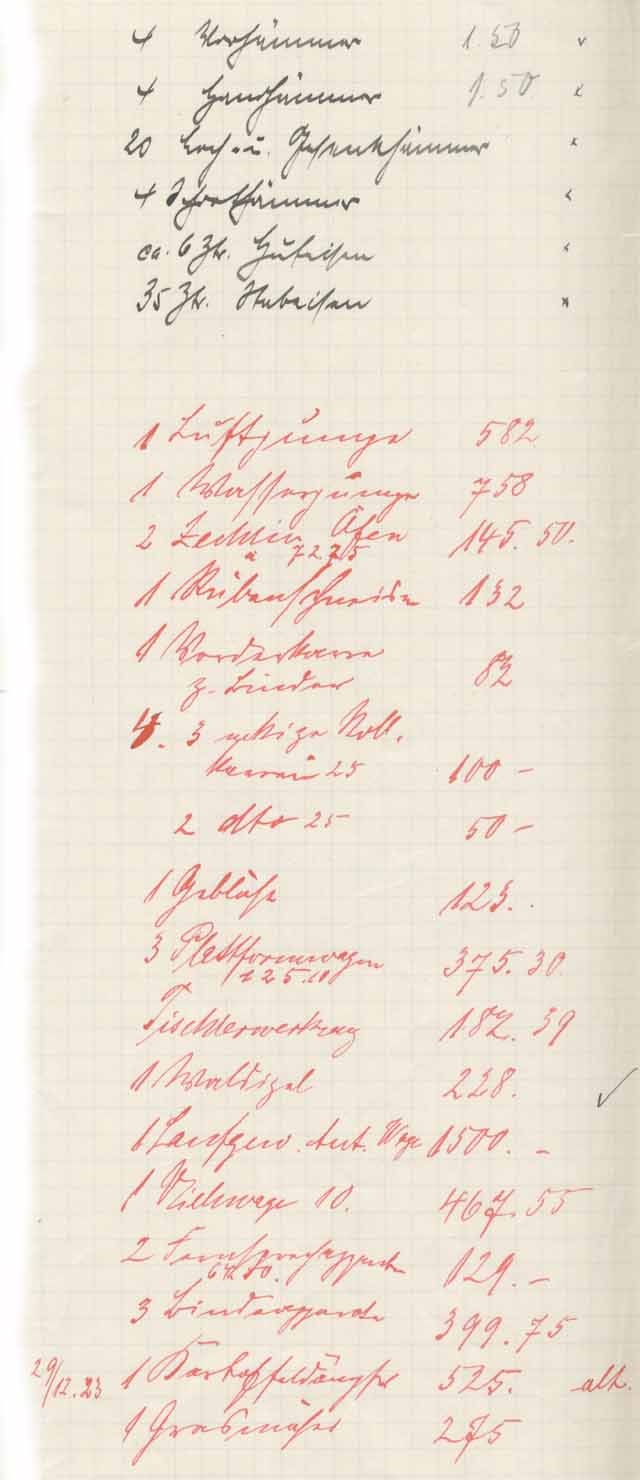 4 Vorhämmer 1.50
4 Handhämmer 1.50
20 Loch- u. Gesenkhämmer
4 Schrothämmer
ca. 6 Ztr. Hufeisen
35 Ztr. Stabeisen
1 Luftpumpe 582
1 Wasserpumpe 758
2 Zechlin Öfen 145.50.
a 72 75
1 Rübenschneider 132
1 Vorderkarre
z. Binder 82
4. 3 eckige Roll-
karren 25 100 -
2 dto 25 50 -
1 Gebläse 123.
3 Plattformwagen 375.30
125.10
Tischlerwerkzeug 182.39
1 Waldigel 228.
1 Laufgew. Aut. Wage 1500. -
1 Viehwage 10. 467.55
2 Fernsprechapparate 129. -
64.50.
3 Binderapparate 399.75
29/12.23 1 Kartoffeldämpfer 525. alt.
1 Grasmäher 275